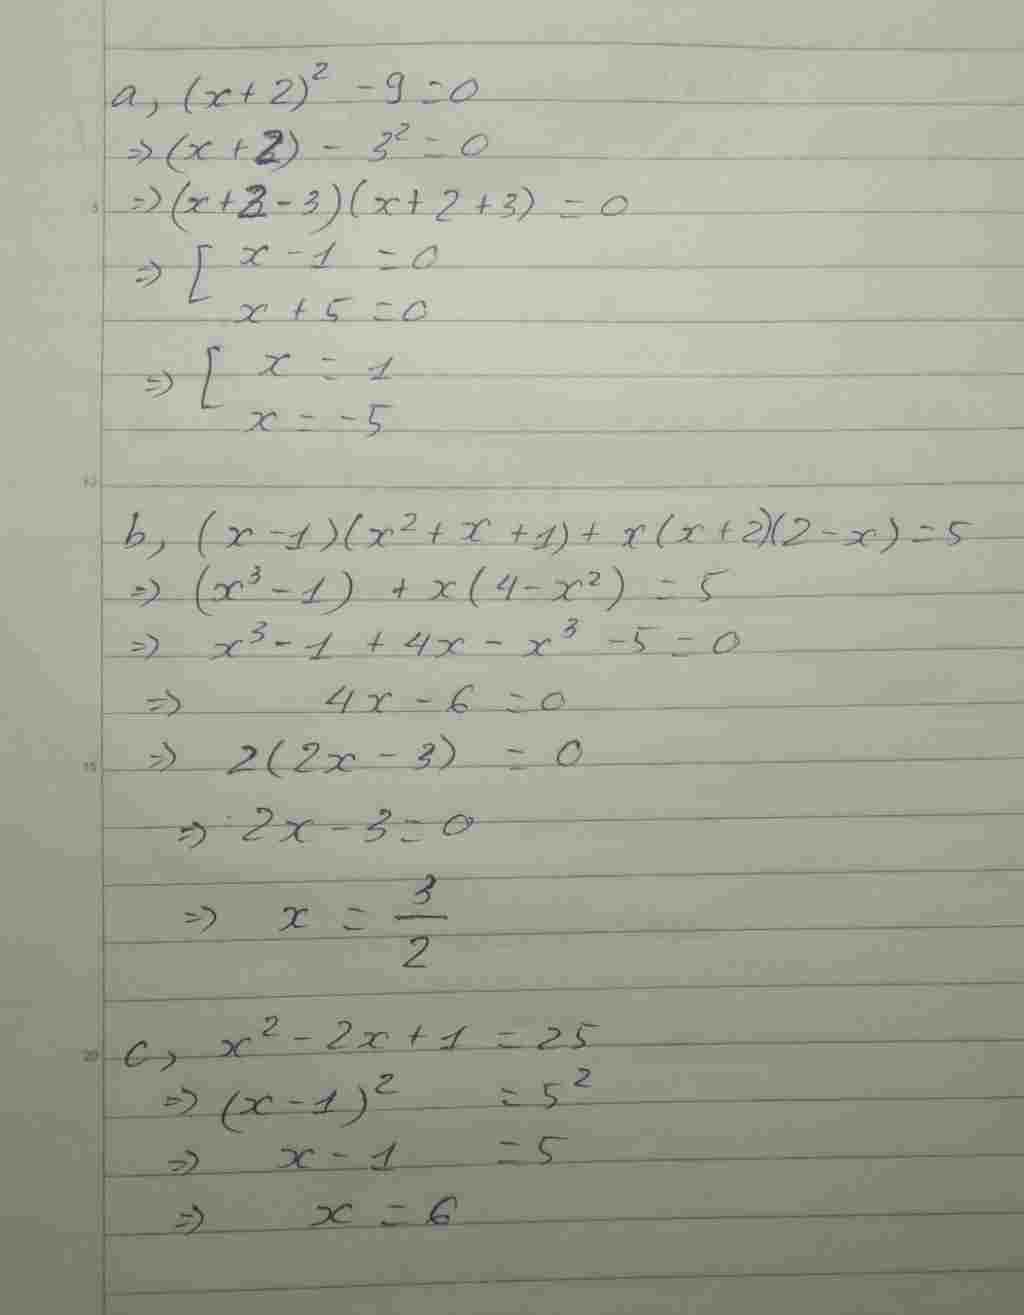 a, (x+2)² - 9 = 0
=> (x+2) - 3² = 0
=> (x+2-3)(x+2+3) = 0
=> [ x - 1 = 0
x + 5 = 0
=> [ x = 1
x = -5
b, (x-1)(x²+x+1) + x(x+2)(2-x) = 5
=> (x³-1) + x(4-x²) = 5
=> x³-1 + 4x - x³ - 5 = 0
=> 4x - 6 = 0
=> 2(2x - 3) = 0
=> 2x - 3 = 0
=> x = 3/2
c, x² - 2x + 1 = 25
=> (x-1)² = 5²
=> x - 1 = 5
=> x = 6